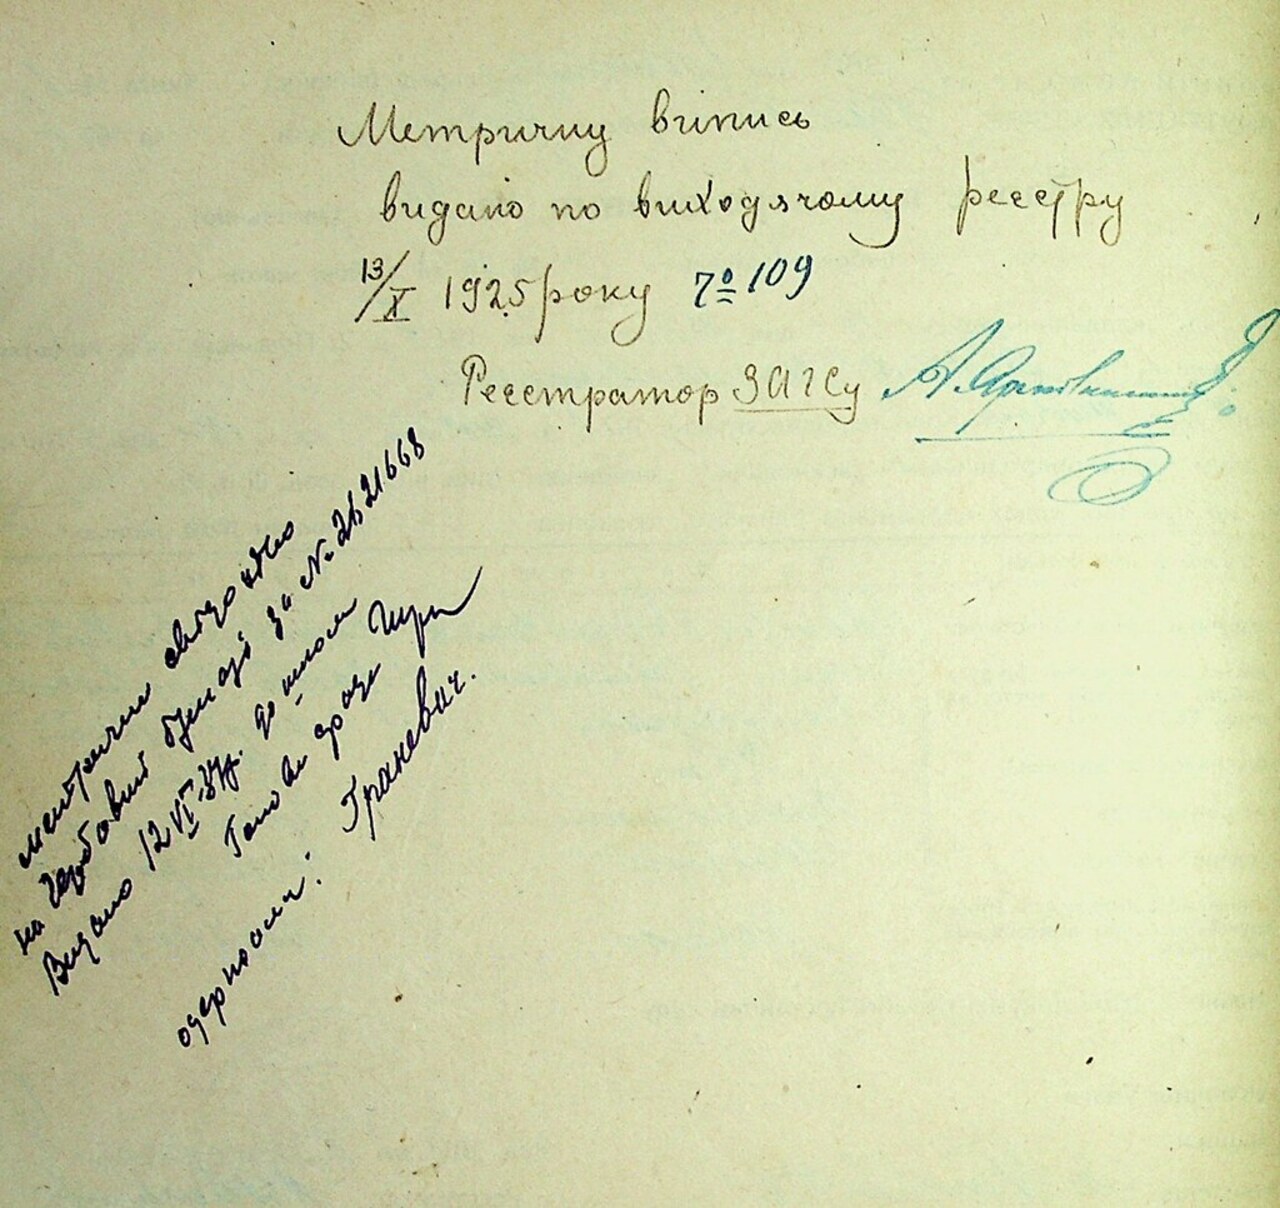 Метричну випись
видано по виходячому реєстру
13/X 1925 року № 109
Реєстратор ЗАГСу А.
метричне свідоцтво
на гербовий бумазі за № 2621668
Видано 12 VI-37р. до школи
одержала: Граневич.